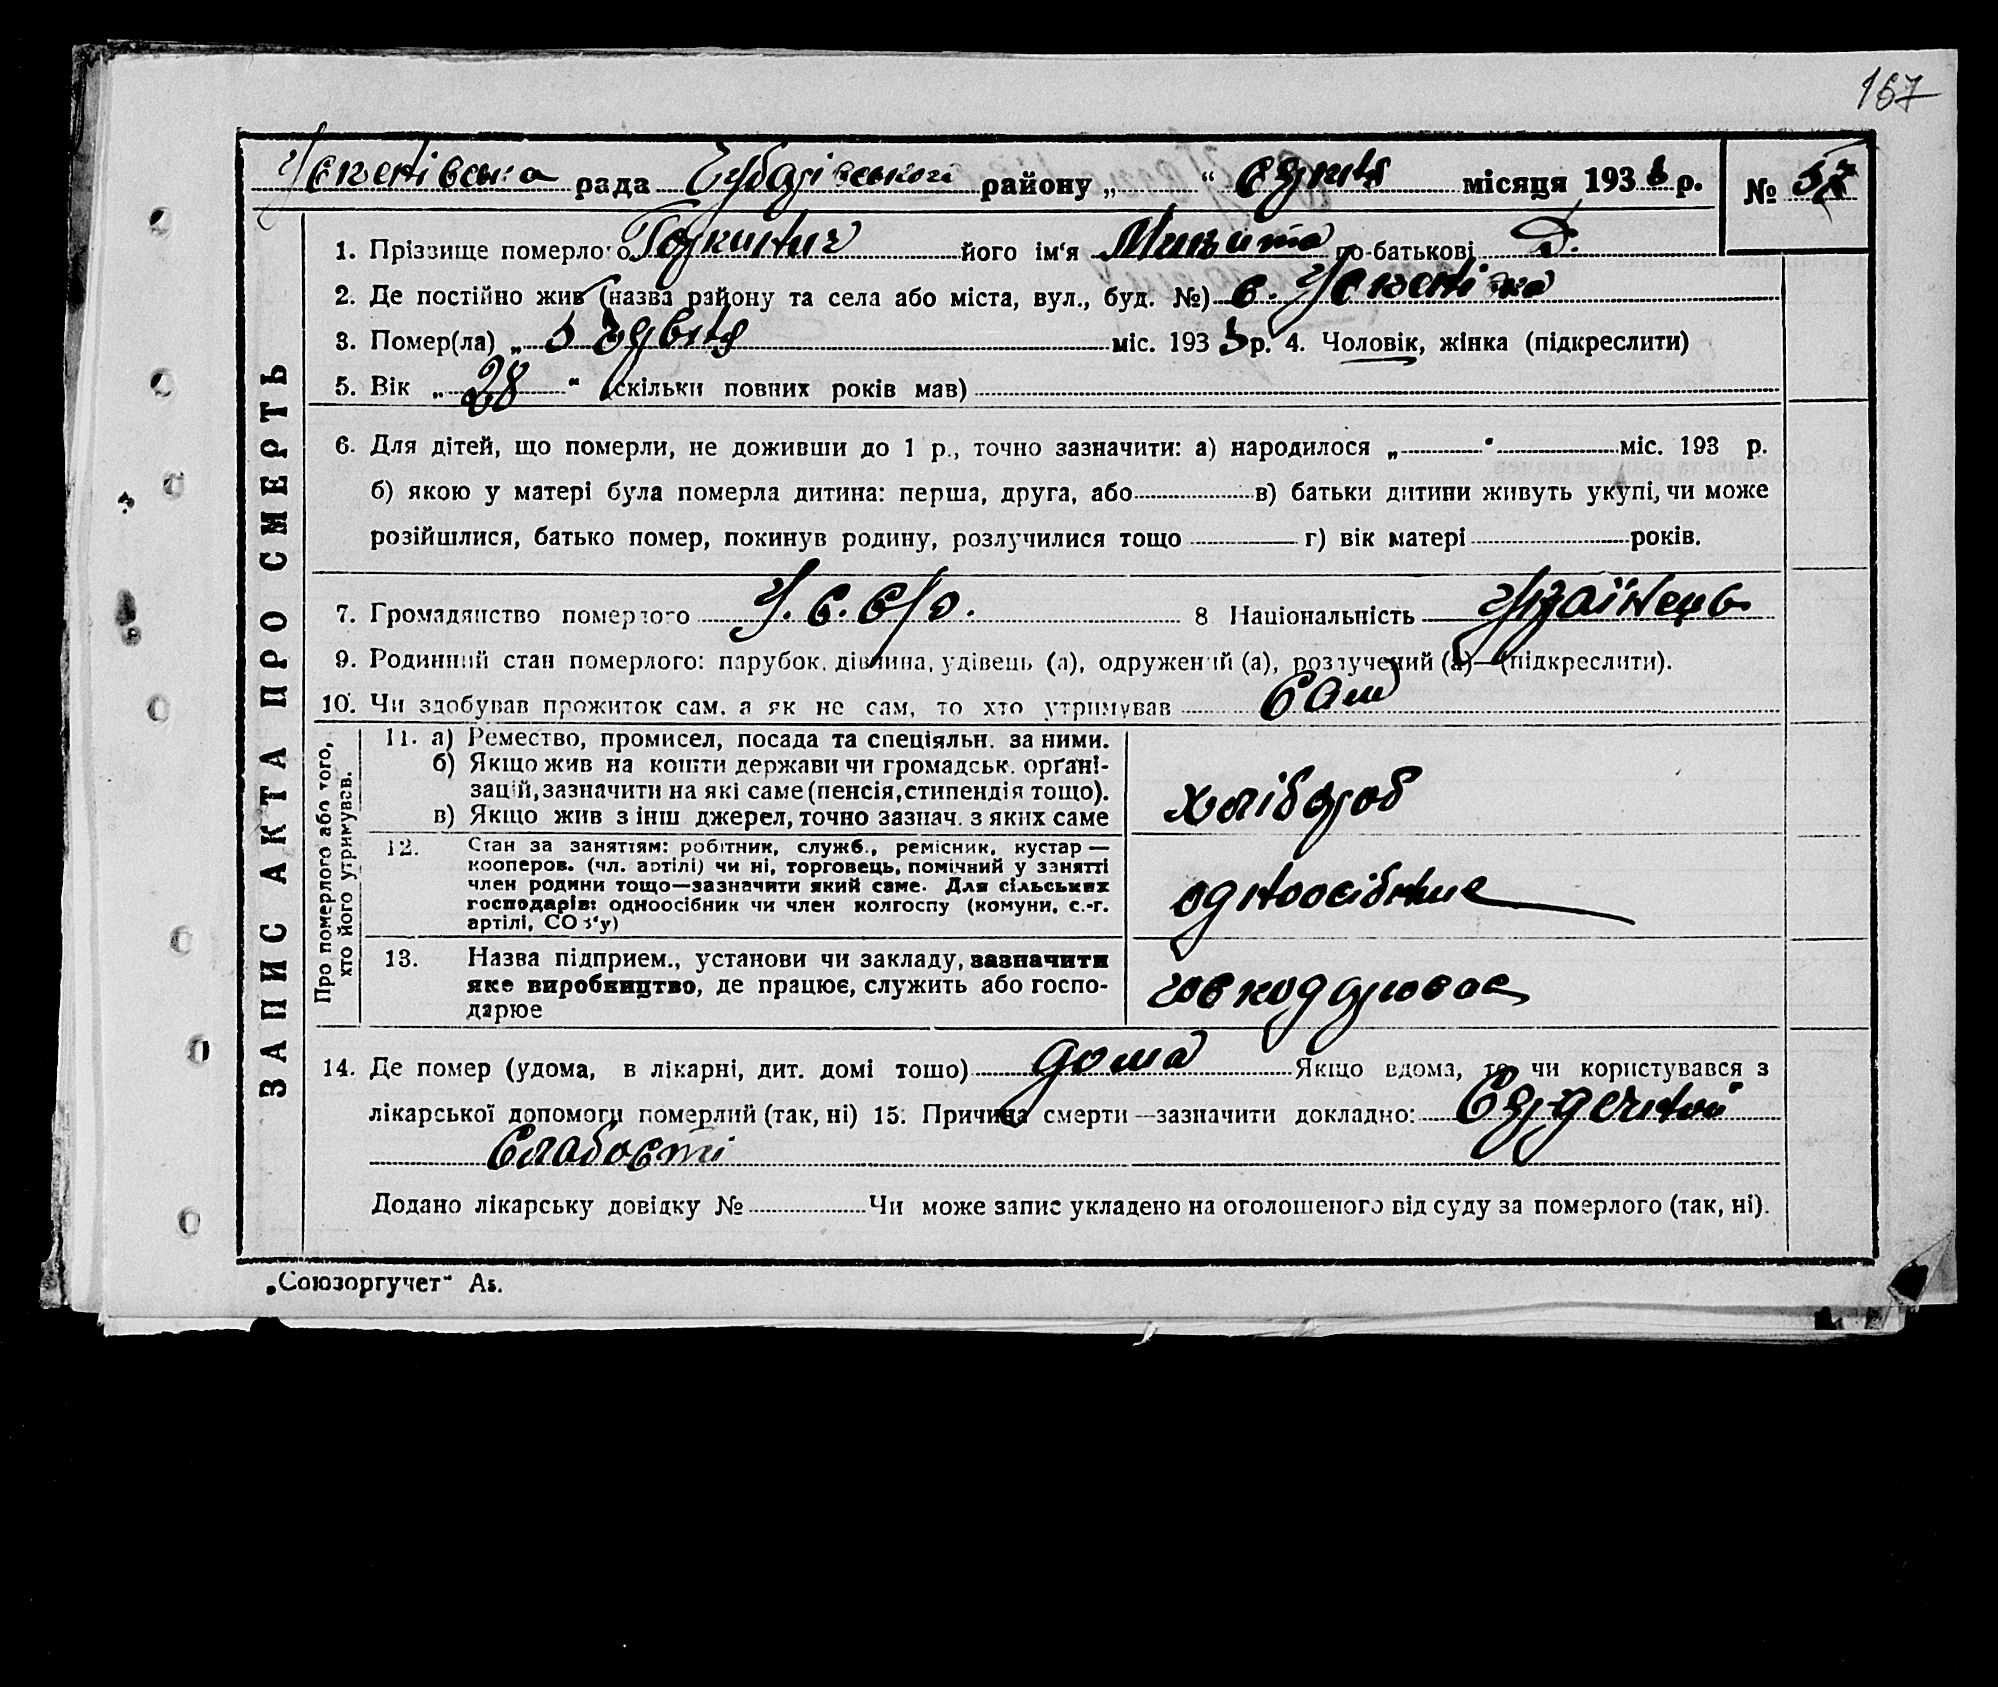 167
рада районує „ “ місяця 193 3 р. № 57
1. Пріззище померлого його ім‘я Микита по-батькові
2. Де постійно жив (назва району та села або міста, вул., буд. №) с.
3. Помер(ла) „ 5 міс. 193 3 р. 4. Чоловік, жінка (підкреслити)
5. Вік „ 28 “ (скільки повних років мав)
6. Для дітей, що померли, не доживши до 1 р., точно зазначити: а) народилося „ “ міс. 193 р.
б) якою у матері була померла дитина: перша, друга, або в) батьки дитини живуть укупі, чи може
розійшлися, батько помер, покинув родину, розлучилися тощо г) вік матері років.
7. Громадянство померлого У.С.С.Р. 8 Національність Українець
9. Родинний стан померлого: парубок, дівчина, удівець (а), одружений (а), розлучений (а)—(підкреслити).
10. Чи здобував прожиток сам, а як не сам, то хто утримував Сам
ЗАПИС АКТА ПРО СМЕРТЬ
Про померлого або того,
хто його утримував.
11. а) Ремество, промисел, посада та спеціяльн. за ними.
б) Якщо жив на кошти держави чи громадськ. орґані-
зацій, зазначити на які саме (пенсія, стипендія тощо).
в) Якщо жив з інш джерел, точно зазнач. з яких саме
хлібороб
12. Стан за заняттям: робітник, служб., ремісник, кустар —
кооперов. (чл. артілі) чи ні, торговець, помічний у занятті
член родини тощо—зазначити який саме. Для сільських
господарів: одноосібник чи член колгоспу (комуни, с.-г.
артілі, СОЗ‘у)
одноосібник
13. Назва підприєм., установи чи закладу, зазначити
яке виробництво, де працює, служить або госпо-
дарює
14. Де помер (удома, в лікарні, дит. домі тощо) дома Якщо вдома, то чи користувався з
лікарської допомоги померлий (так, ні) 15. Причина смерти—зазначити докладно: Сердечной
слабості
Додано лікарську довідку № Чи може запис укладено на оголошеного від суду за померлого (так, ні).
„Союзоргучет“ А5.